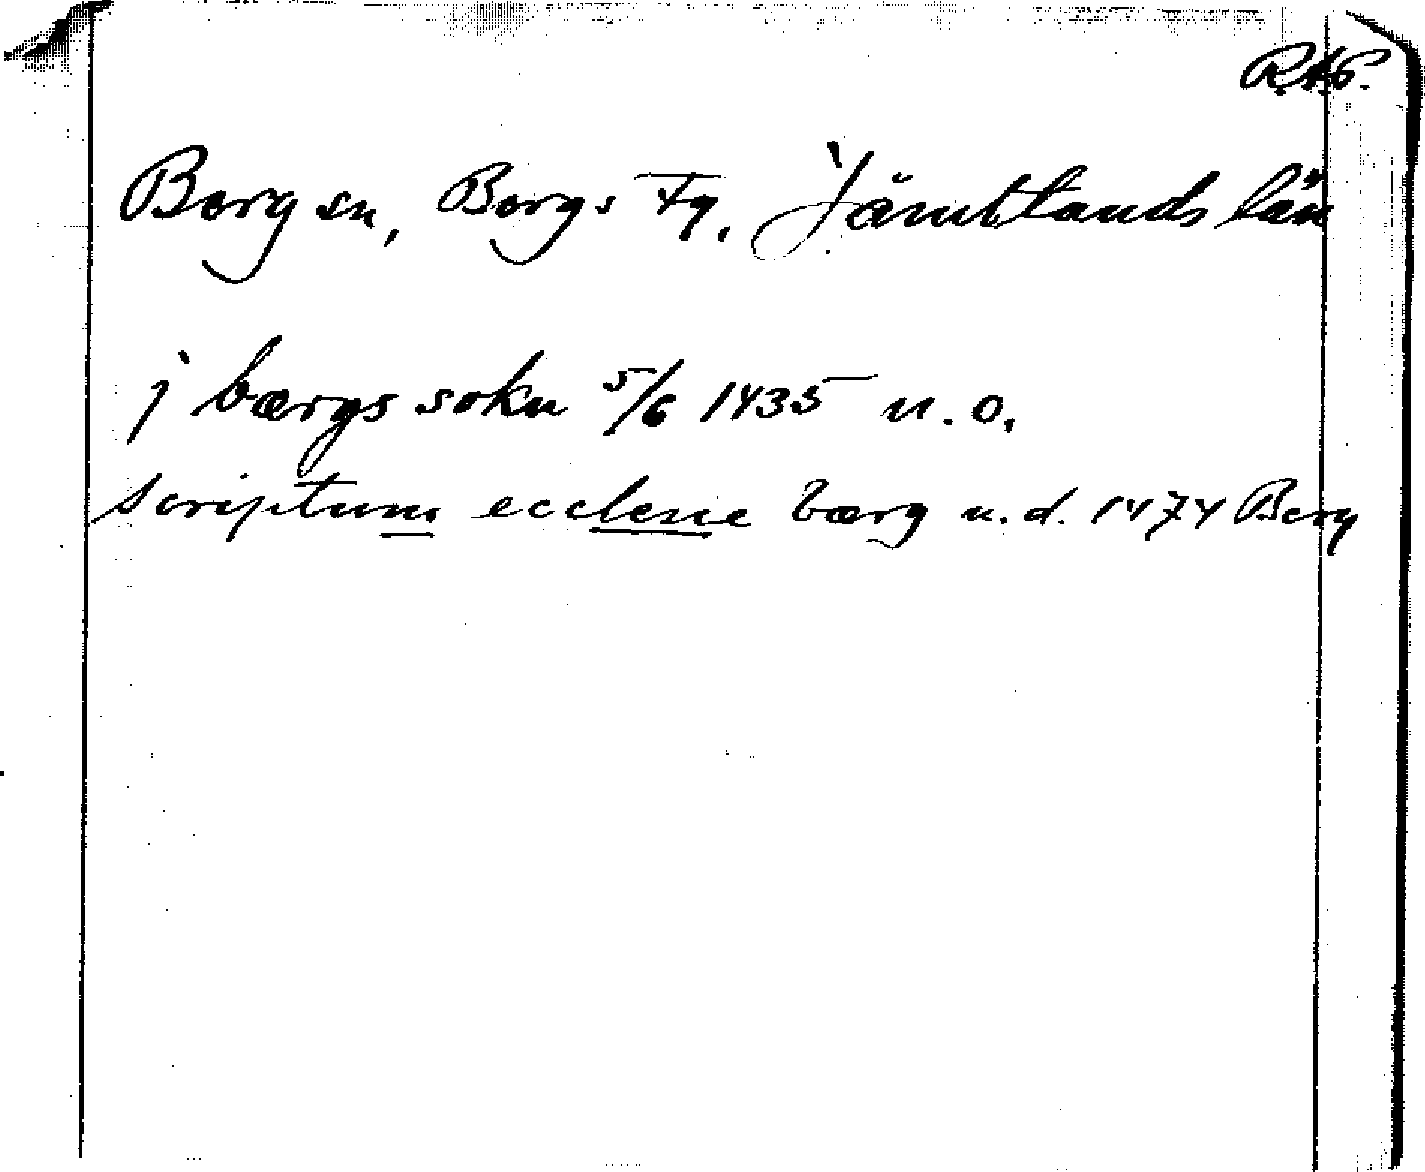 R.A.P.
Berg sn, Bergs tg, Jämtlands län
j bærgs sokn 5/6 1435 n.o.
scriptum ecclesie bærg u.d. 1474 Berg